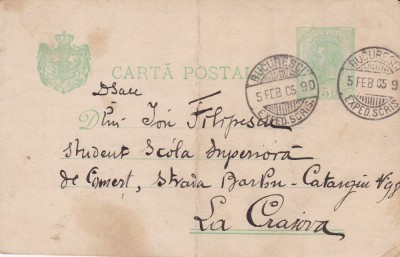 CARTĂ POSTALĂ
BUCURESCI
5 FEB 05 9D
EXPED.SCRIS.
BUCURESCI
5 FEB 05 9
EXPED.SCRIS
5
Dsale
Dlui Ion Filipescu
Student Scóla Superioră
de Comerț, Strada Barbu-Catargiu
La Craiova